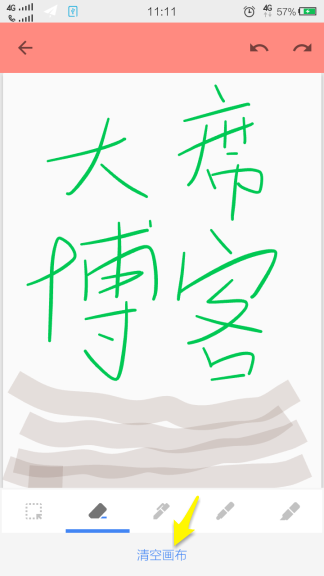 4G 11:11 4G 57%
大席
博客
清空画布